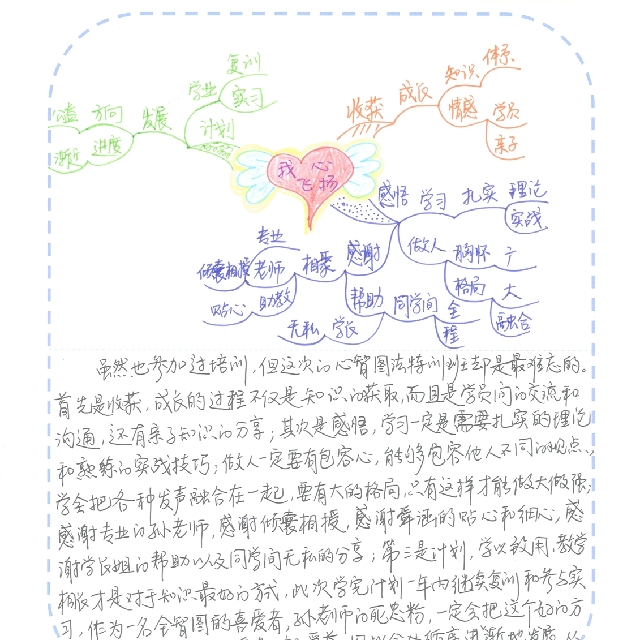 复训
学业
实习
计划
发展
方向
进度
渐近
收获
成长
知识
体系
情感
学员
亲子
我心飞扬
感悟
学习
扎实
理论
实战
做人
胸怀
广
格局
大
融合
感谢
相聚
专业
老师
倾囊相授
助教
贴心
帮助
同学间
全程
学长
无私
虽然也参加过培训,但这次的心智图法特训班却是最难忘的。
首先是收获,成长的过程不仅是知识的获取,而且是学员间的交流和
沟通,还有亲子知识的分享;其次是感悟,学习一定是需要扎实的理论
和熟练的实战技巧;做人一定要有包容心,能够包容他人不同的观点,
学会把各种发声融合在一起,要有大的格局,只有这样才能做大做强;
感谢专业的孙老师,感谢倾囊相授,感谢舜涵的贴心和细心,感
谢学长姐的帮助以及同学间无私的分享;第三是计划,学以致用,教学
相长才是对于知识最好的方式,此次学完计划一年内继续复训和参与实
习,作为一名全智图的喜爱者,孙老师的死忠粉,一定会把这个好的方